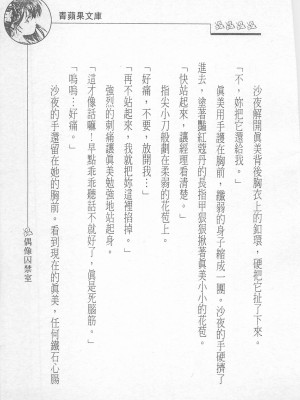 青蘋果文庫
沙夜解開眞美背後胸衣上的釦環，硬把它扯了下來。
「不，妳把它還給我。」
眞美用手護在胸前，纖弱的身子縮成一團。沙夜的手硬擠了
進去，塗著豔紅蔻丹的長指甲狠狠揪著眞美小小的花苞。
「快站起來，讓經理看清楚。」
指尖小刀般劃在柔弱的花苞上。
「好痛，不要，放開我…」
「再不站起來，我就把妳這裡掐掉。」
強烈的刺痛讓眞美勉強地站起身。
「這才像話嘛！早點乖乖聽話不就好了，眞是死腦筋。」
「嗚嗚…好痛！」
沙夜的手還留在她的胸前。看到現在的眞美，任何鐵石心腸
偶像囚禁室